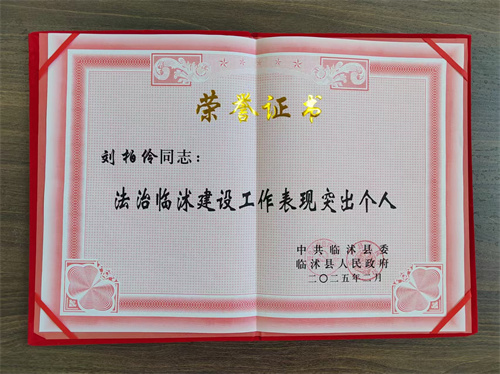 荣誉证书
刘柏伶同志：
法治临沭建设工作表现突出个人
中共临沭县委
临沭县人民政府
二〇二五年二月